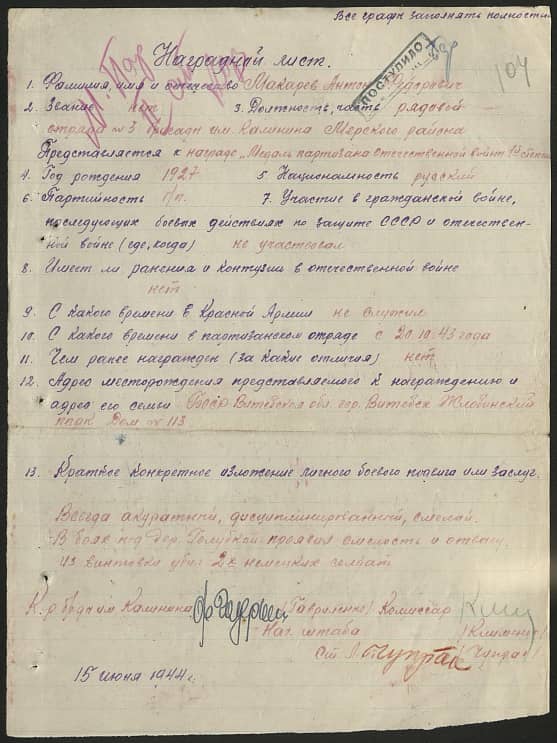 Все графы заполнять полностью
104
ПОСТУПИЛО
Наградной лист.
1. Фамилия, имя и отчество Макарев Антон
2. Звание нет 3. Должность, часть рядовой
отряда №3 бригады им. Калинина Мехского района
Представляется к награде „Медаль партизана отечественной войны 1й степени
4. Год рождения 1927 5 Национальность русский
6. Партийность б/п. 7. Участие в гражданской войне,
последующих боевых действиях по защите СССР и отечествен-
ной войне (где, когда) не участвовал
8. Имеет ли ранения и контузии в отечественной войне
нет
9. С какого времени в Красной Армии не служил
10. С какого времени в партизанском отряде с 20.10.43 года
11. Чем ранее награжден (за какие отличия) нет
12. Адрес месторождения представляемого к награждению и
адрес его семьи БССР Витебская обл. гор. Витебск Жлобинский
дом № 113
13. Краткое конкретное изложение личного боевого подвига или заслуг.
Всегда акуратный, дисциплинированный, смелый.
В боях под дер. проявил смелость и отвагу
из винтовки убил 2х немецких солдат
К-р бр-ды им Калинина (Гавриленко) Комиссар
Нач. штаба
Ст. Л.
15 июня 1944г.